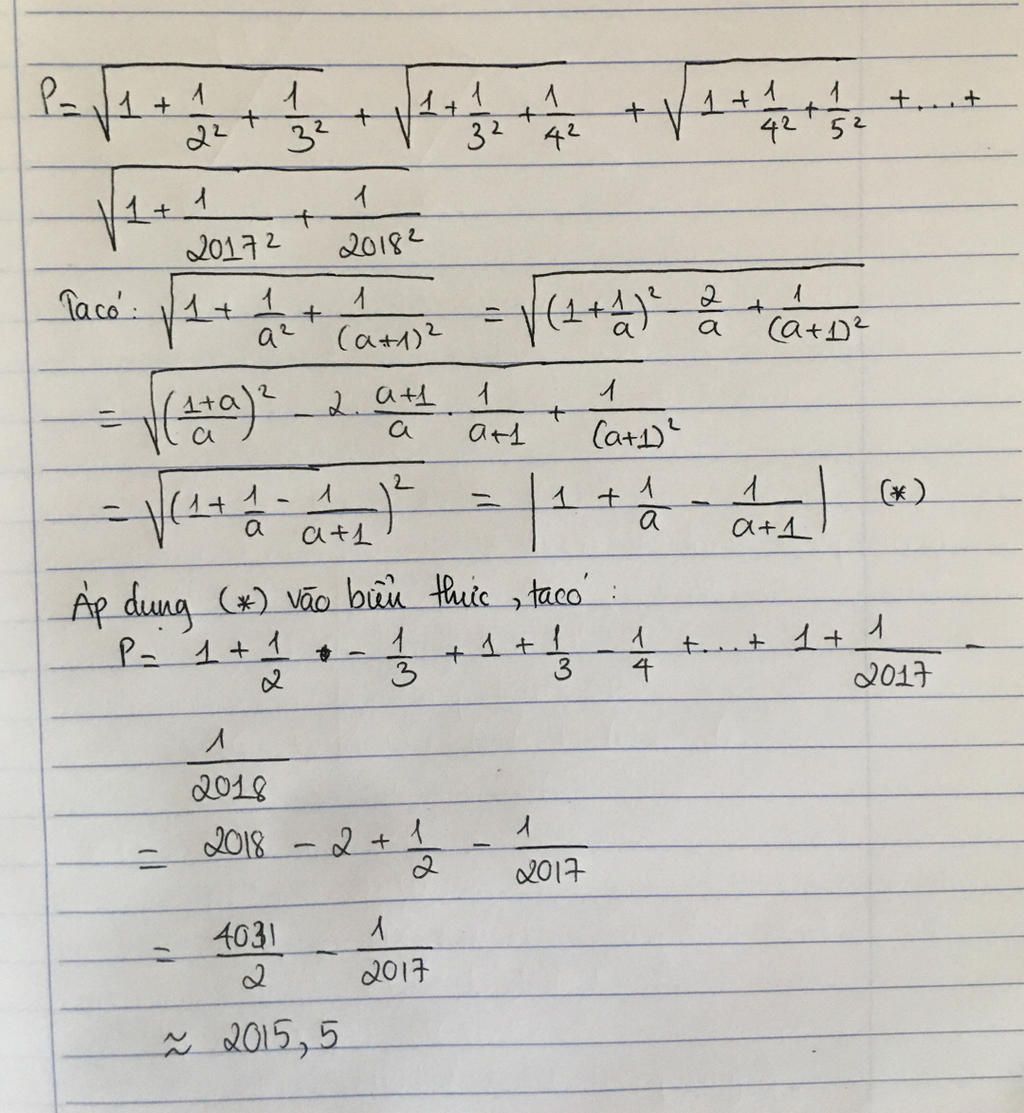 P = √(1 + 1/2² + 1/3²) + √(1 + 1/3² + 1/4²) + √(1 + 1/4² + 1/5²) + ... +
√(1 + 1/2017² + 1/2018²)
Ta có: √(1 + 1/a² + 1/(a+1)²) = √((1 + 1/a)² - 2/a + 1/(a+1)²)
= √(((1+a)/a)² - 2 . (a+1)/a . 1/(a+1) + 1/(a+1)²)
= √((1 + 1/a - 1/(a+1))²) = |1 + 1/a - 1/(a+1)| (*)
Áp dụng (*) vào biểu thức, ta có:
P = 1 + 1/2 - 1/3 + 1 + 1/3 - 1/4 + ... + 1 + 1/2017 -
1/2018
= 2018 - 2 + 1/2 - 1/2017
= 4031/2 - 1/2017
≈ 2015,5